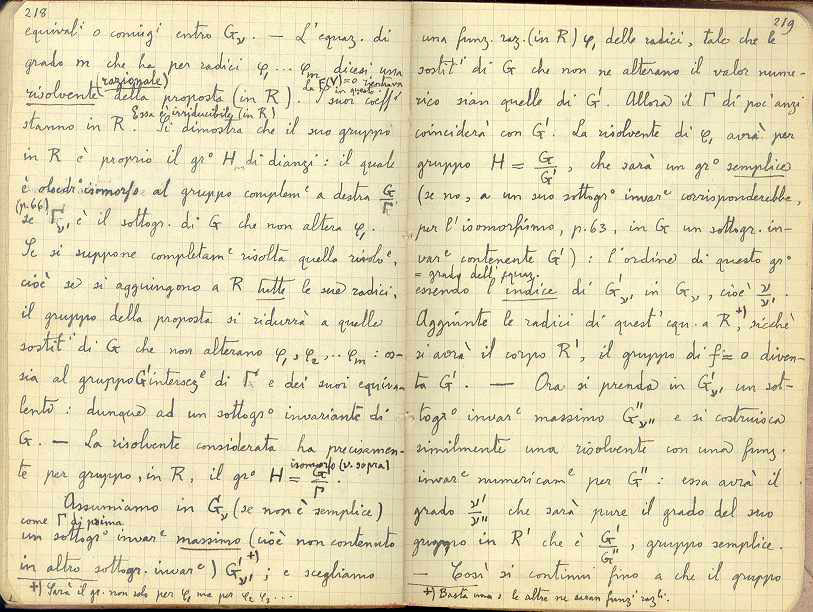 218
equivali o coniugi entro Gν. — L'equaz. di
grado m che ha per radici φ1 ... φm dicesi una
(razionale)
risolvente della proposta (in R). I suoi coeffi
la F(V)=0 rientrava in questo
Essa è irriducibile (in R)
stanno in R. Si dimostra che il suo gruppo
in R è proprio il gro H di dianzi: il quale
è oloedro isomorfo al gruppo complemo a destra G/Γ
(p.66)
se Γν, è il sottogr. di G che non altera φ1.
Se si suppone completame risolta quella risolve,
cioè se si aggiungono a R tutte le sue radici,
il gruppo della proposta si ridurrà a quelle
sostiti di G che non alterano φ1, φ2, .. φm : os-
sia al gruppo G' interseze di Γ e dei suoi equiva-
lenti : dunque ad un sottogro invariante di
G. — La risolvente considerata ha precisamen-
isomorfo (v. sopra)
te per gruppo, in R, il gro H = G/Γ.
Assumiamo in Gν (se non è semplice)
come Γ di prima
un sottogro invare massimo (cioè non contenuto
in altro sottogr. invare) G'ν' +) ; e scegliamo
+) Sarà il gr. non solo per φ1 ma per φ2 φ3 ...
219
una funz. raz. (in R) φ1 delle radici, tale che le
sostiti di G che non ne alterano il valor nume-
rico sian quelle di G'. Allora il Γ di poc'anzi
coinciderà con G'. La risolvente di φ1 avrà per
gruppo H = G/G', che sarà un gro semplice
(se no, a un suo sottogro invare corrisponderebbe,
per l'isomorfismo, p.63, in G un sottogr. in-
vare contenente G') : l'ordine di questo gro
= grado dell'equaz.
essendo indice di G'ν' in Gν, cioè ν/ν'.
Aggiunte le radici di quest'equ. a R +), sicchè
si avrà il corpo R', il gruppo di f=0 diven-
ta G'. — Ora si prenda in G'ν' un sot-
togro invare massimo G''ν'' e si costruisca
similmente una risolvente con una funz.
invare numericame per G'' : essa avrà il
grado ν'/ν'' che sarà pure il grado del suo
gruppo in R' che è G'/G'', gruppo semplice.
— Così si continui fino a che il gruppo
+) Basta una, le altre ne saran funzi razli.